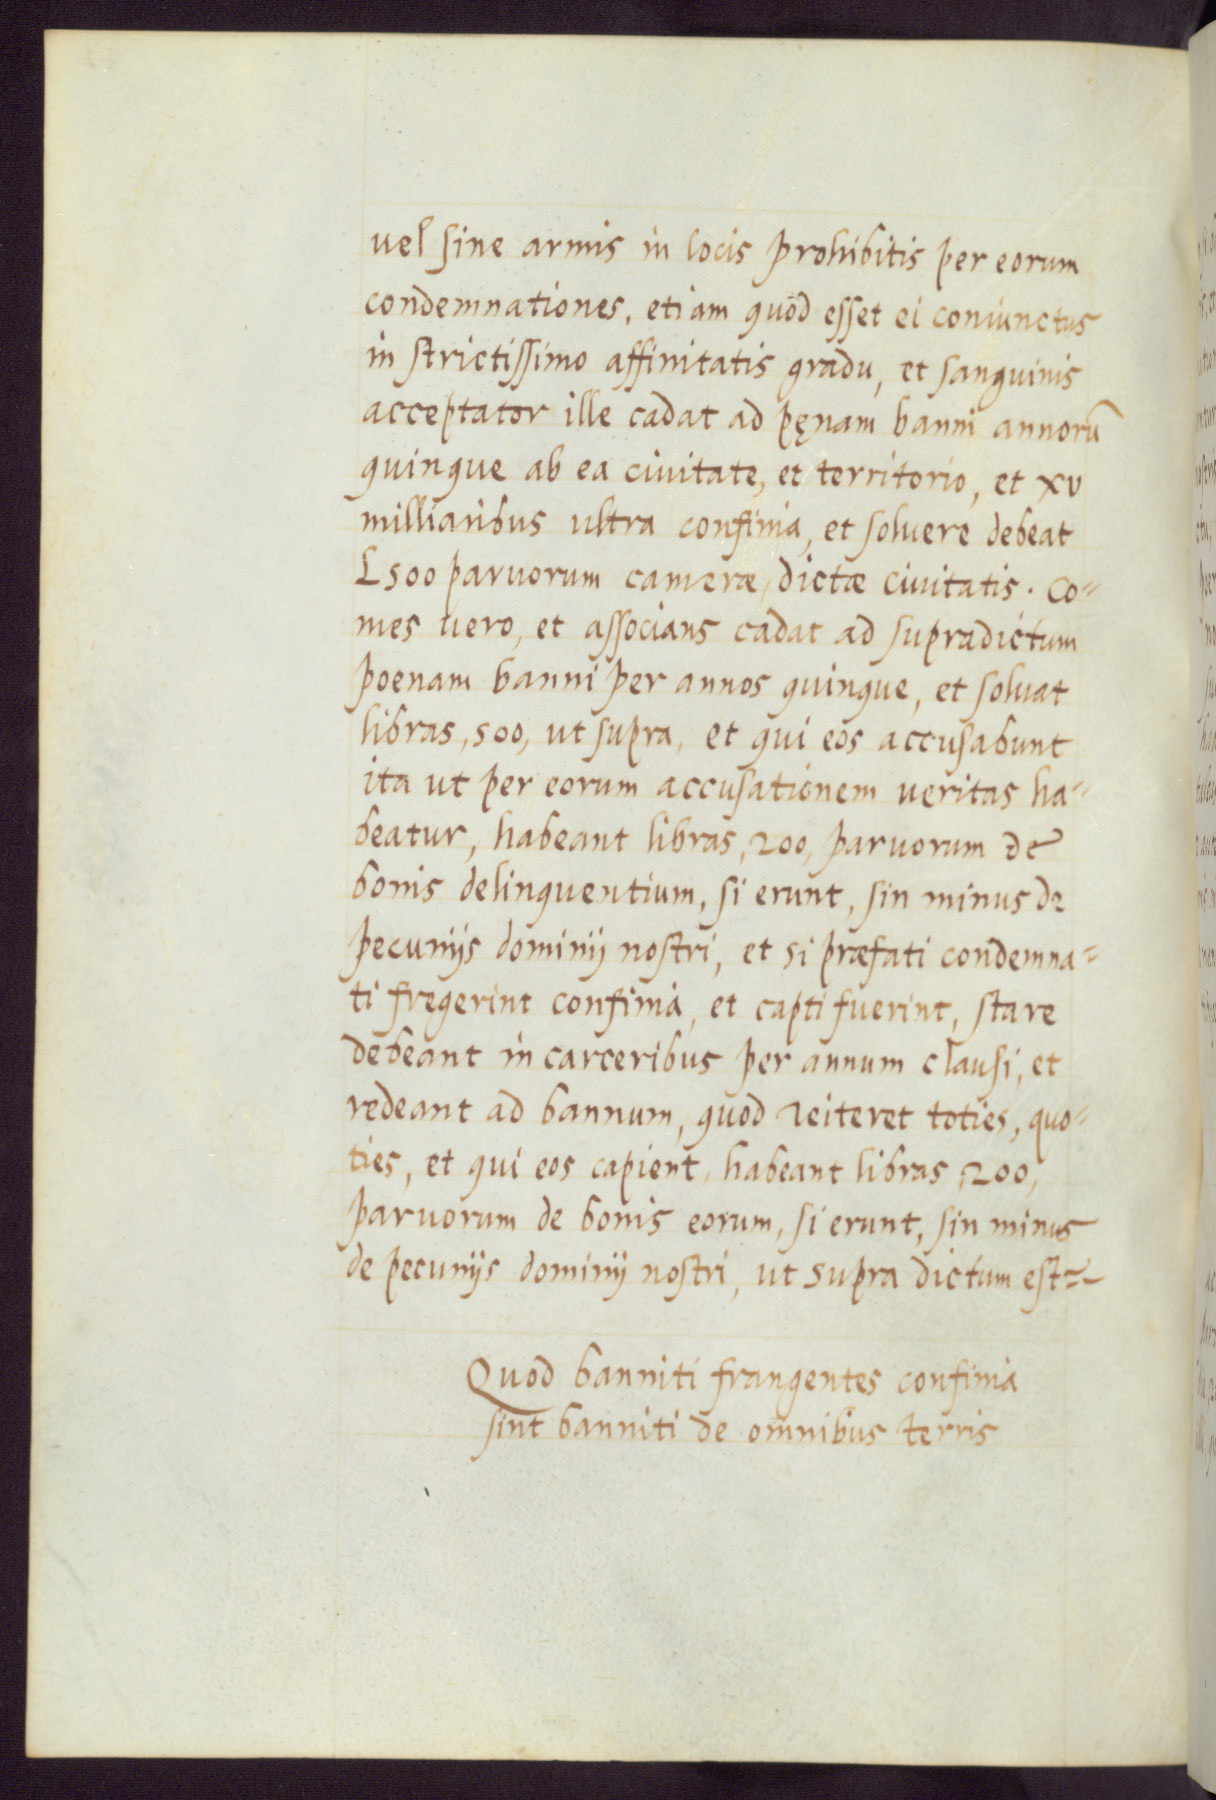 uel sine armis in locis prohibitis per eorum
condemnationes, etiam quod esset ei coniunctus
in strictissimo affinitatis gradu, et sanguinis
acceptator ille cadat ad pęnam banni annorū
quinque ab ea ciuitate, et territorio, et xv
milliaribus ultra confinia, et soluere debeat
L500 paruorum cameræ, dictæ ciuitatis. Co=
mes uero, et associans cadat ad supradictum
poenam banni per annos quinque, et soluat
libras, 500, ut supra, et qui eos accusabunt
ita ut per eorum accusationem ueritas ha=
beatur, habeant libras, 200, paruorum de
bonis delinquentium, si erunt, sin minus de
pecunijs dominij nostri, et si præfati condemna=
ti fregerint confinia, et capti fuerint, stare
debeant in carceribus per annum clausi, et
redeant ad bannum, quod reiteret toties, quo=
ties, et qui eos capient, habeant libras, 200,
paruorum de bonis eorum, si erunt, sin minus
de pecunijs dominij nostri, ut supra dictum est
Quod banniti frangentes confinia
sint banniti de omnibus terris